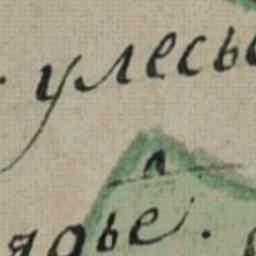 улесь
л
ядье.